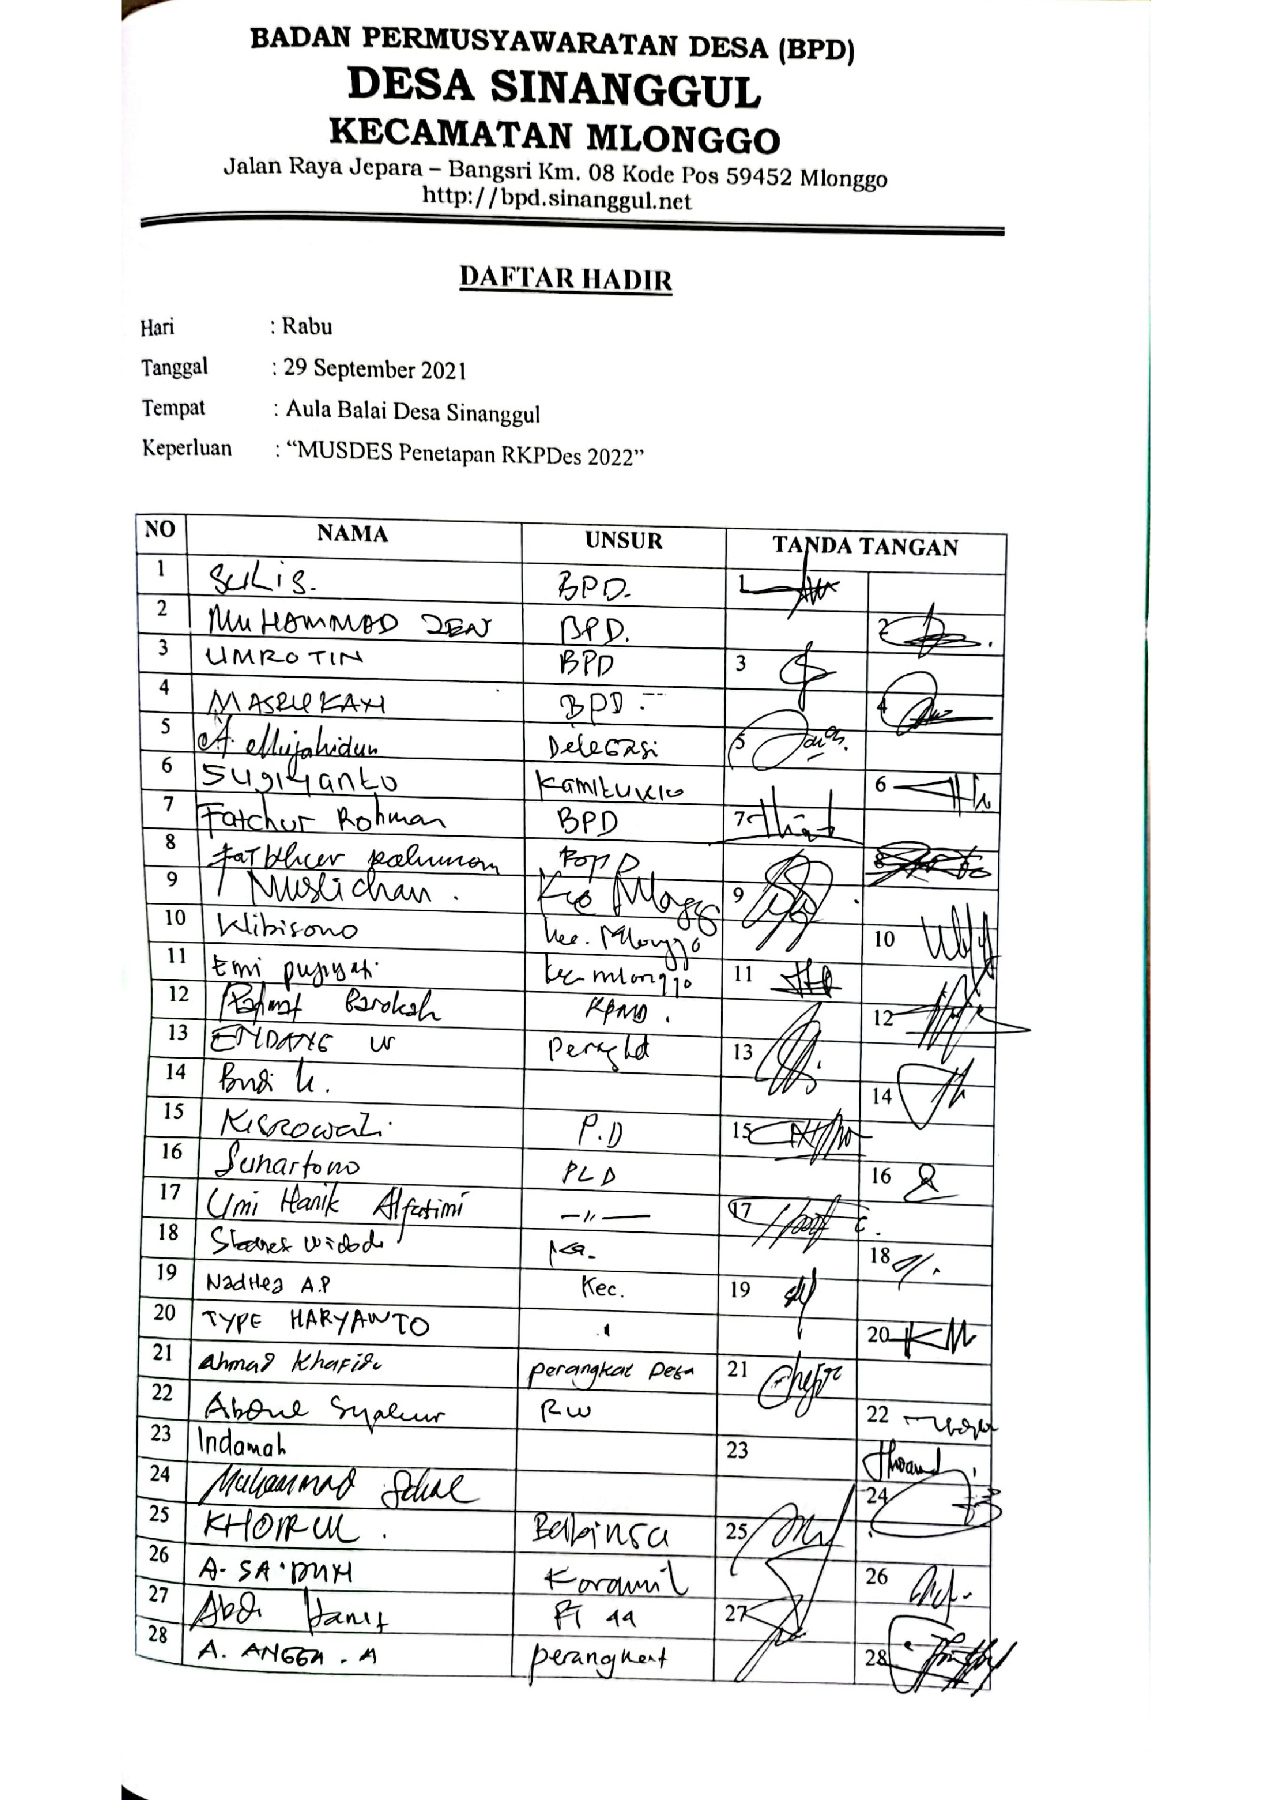 BADAN PERMUSYAWARATAN DESA (BPD)
DESA SINANGGUL
KECAMATAN MLONGGO
Jalan Raya Jepara – Bangsri Km. 08 Kode Pos 59452 Mlonggo
http://bpd.sinanggul.net
DAFTAR HADIR
Hari : Rabu
Tanggal : 29 September 2021
Tempat : Aula Balai Desa Sinanggul
Keperluan : “MUSDES Penetapan RKPDes 2022”
NO NAMA UNSUR TANDA TANGAN
1 SuLis. BPD. 1
2 MuHAMMAD ZEN BPD. 2
3 UMROTIN BPD 3
4 MASRUKAN BPD 4
5 A. Mujahidun Delegasi 5
6 Sugiyanto Kamituwo 6
7 Fatchur Rohman BPD 7
8 8
9 Muslichan. Kec Mlonggo 9
10 Wibisono kec. Mlonggo 10
11 Emi pujiyati kec mlonggo 11
12 Rahmat Barokah KPMD. 12
13 ENDANG W 13
14 Budi U. 14
15 Kisrowati P.D 15
16 Sunartono PLD 16
17 Umi Hanik Alfatimi —〃— 17
18 18
19 Nadhea A.P Kec. 19
20 TYPE HARYANTO 20
21 Ahmad Khafidz perangkat Desa 21
22 Abdul Syakur RW 22
23 Indamah 23
24 Muhammad 24
25 KHOIRUL. Babinsa 25
26 A. Koramil 26
27 Abdi Hanif RT 27
28 A. ANGGA. A perangkat 28